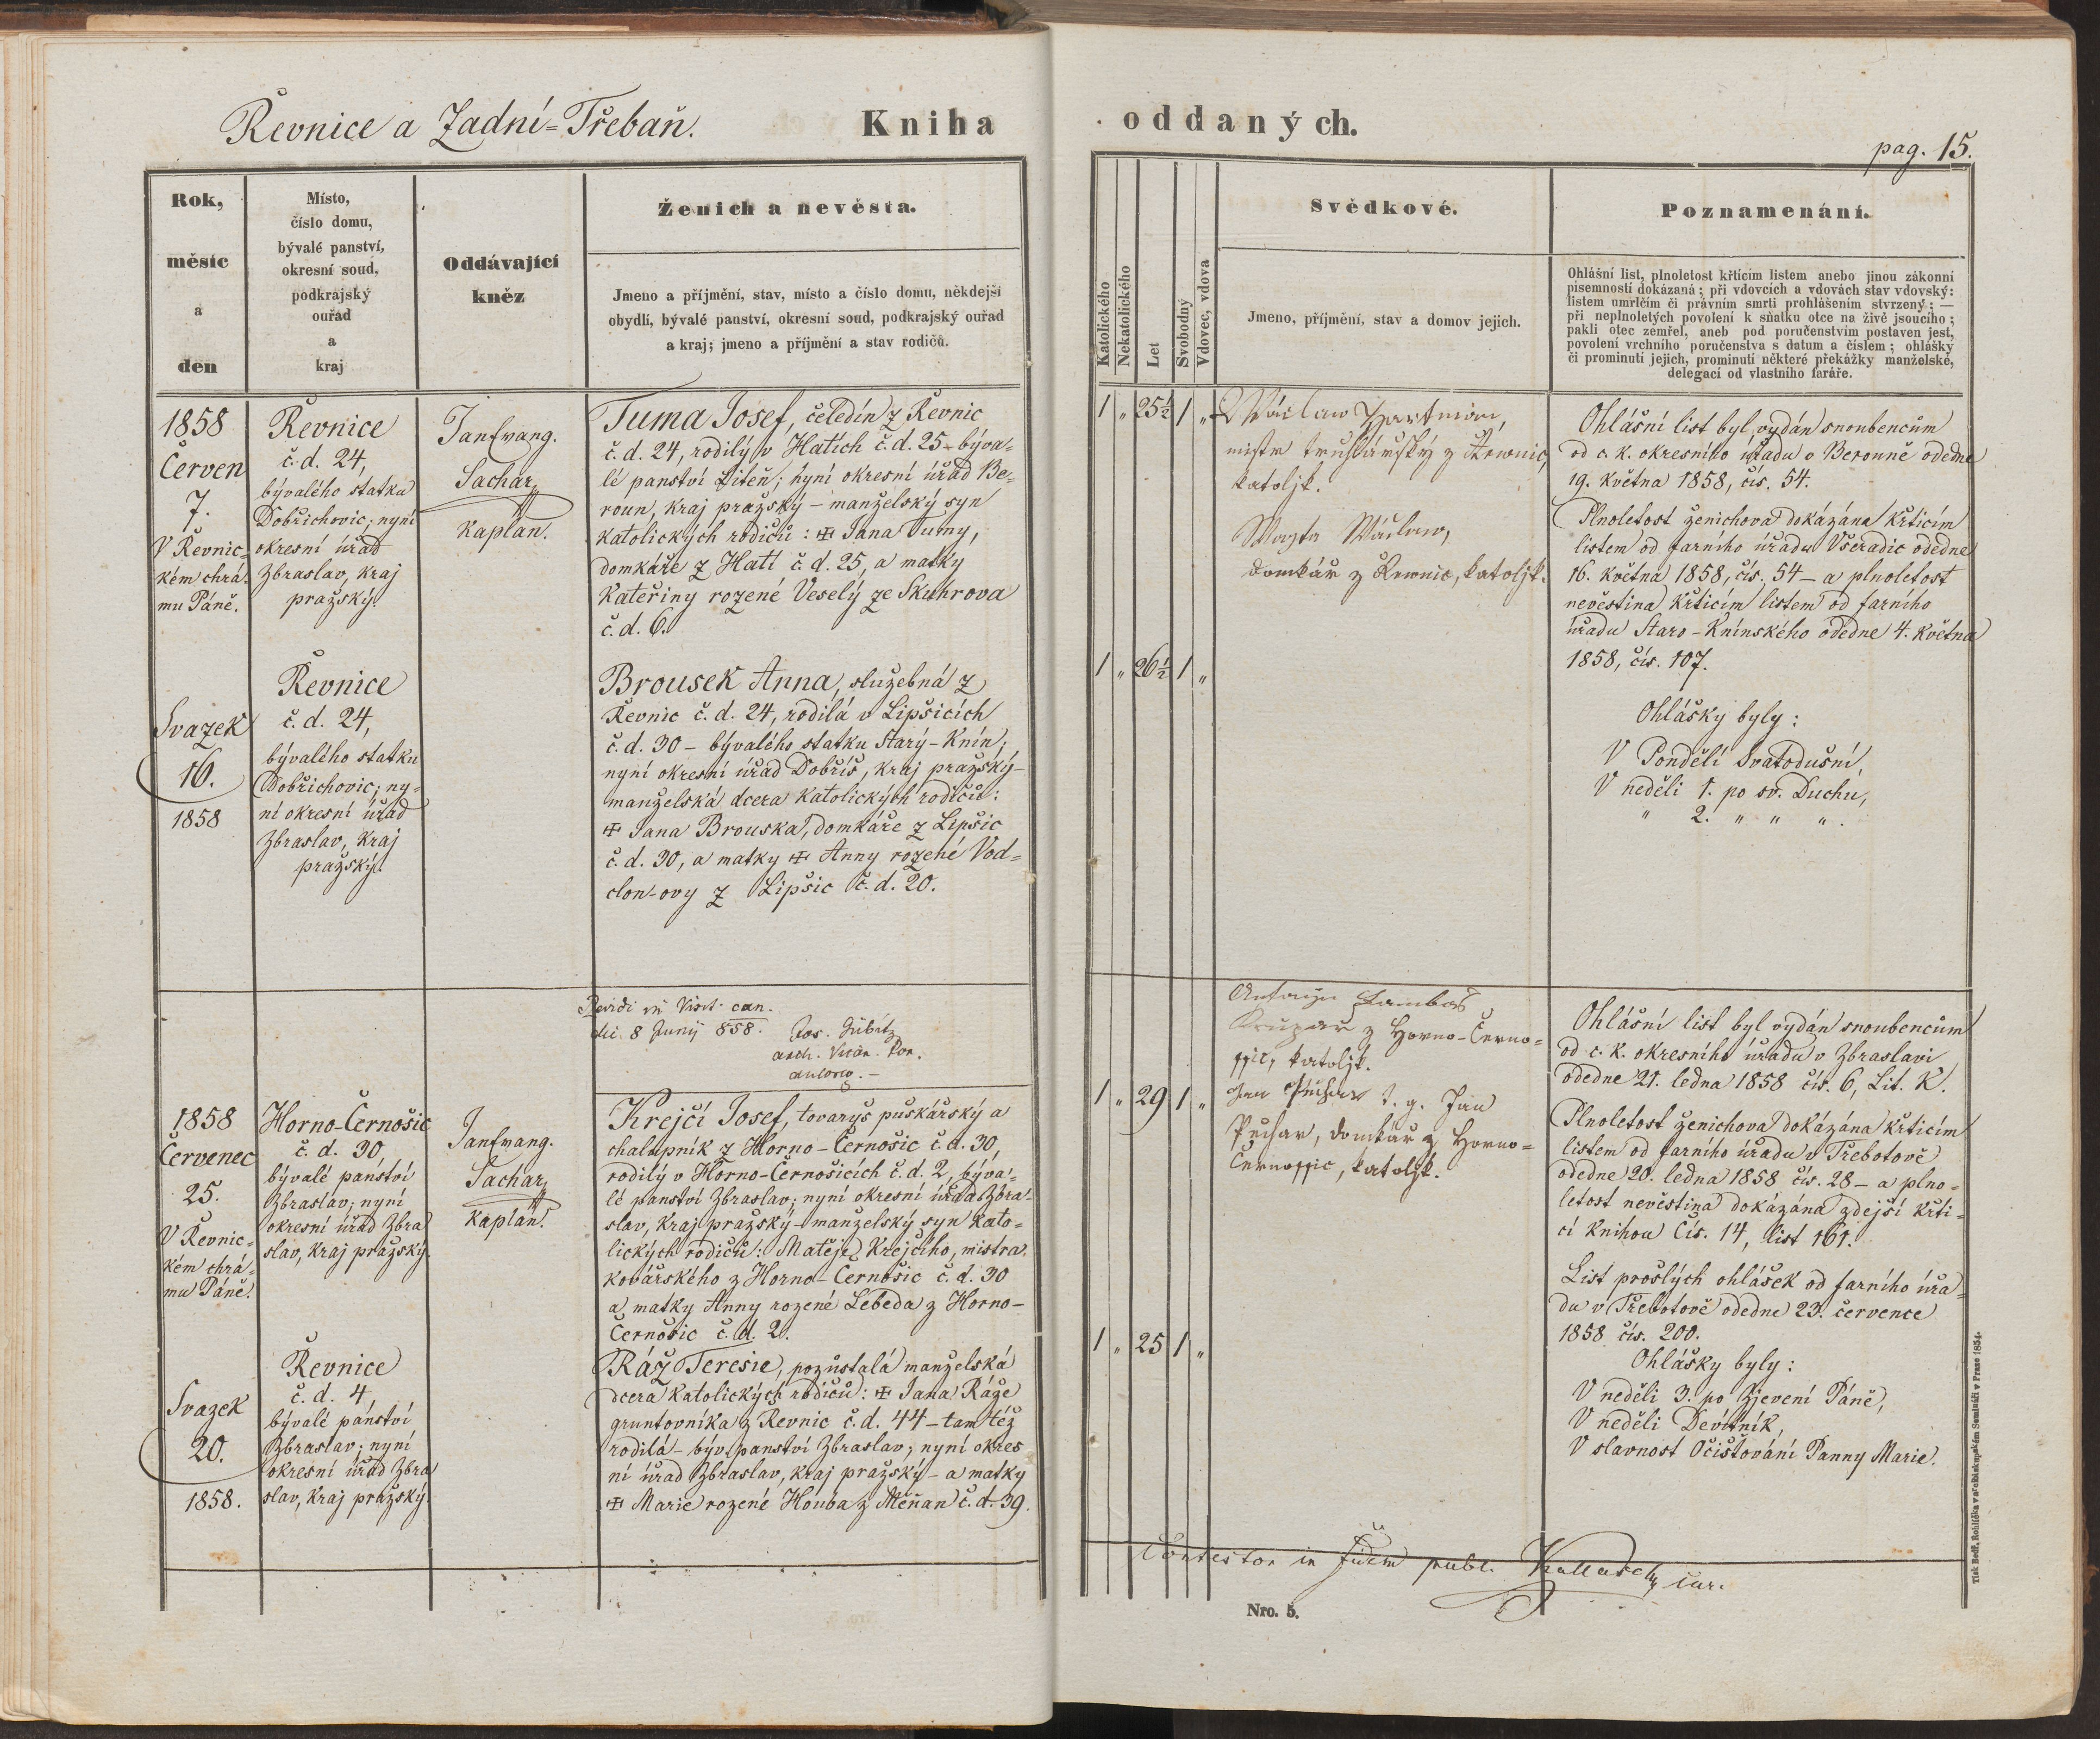 Řevnice a Zadní-Třebaň.
Kniha
oddaných.
pag. 15.
Rok,
měsíc
a
den
Místo,
číslo domu,
bývalé panství,
okresní soud,
podkrajský
ouřad
a
kraj
Oddávající
kněz
Ženich a nevěsta.
Jmeno a příjmění, stav, místo a číslo domu, někdejší
obydlí, bývalé panství, okresní soud, podkrajský ouřad
a kraj; jmeno a příjmění a stav rodičů.
Katolického
Nekatolického
Let
Svobodný
Vdovec, vdova
Svědkové.
Jmeno, příjmění, stav a domov jejich.
Poznamenání.
Ohlášní list, plnoletost křticím listem anebo jinou zákonní
písemností dokázaná; při vdovcích a vdovách stav vdovský:
listem umrlčím či právním smrti prohlášením stvrzený; —
při neplnoletých povolení k sňatku otce na živě jsoucího;
pakli otec zemřel, aneb pod poručenstvím postaven jest,
povolení vrchního poručenstva s datum a číslem; ohlášky
či prominutí jejich, prominutí některé překážky manželské,
delegací od vlastního faráře.
1858
Červen
7.
V Řevnic-
kém chrá-
mu Páně.
Svazek
16.
1858
Řevnice
č. d. 24,
bývalého statku
Dobřichovic; nyní
okresní úřad
Zbraslav, kraj
pražský.
Řevnice
č. d. 24,
bývalého statku
Dobřichovic; ny-
ní okresní úřad
Zbraslav, kraj
pražský.
Sachar,
kaplan.
Tuma Josef, čeledín z Řevnic
č. d. 24, rodilý v Hatích č. d. 25 - býva-
lé panství Liteň; nyní okresní úřad Be-
roun, kraj pražský - manželský syn
katolických rodičů: ✠ Jana Tumy,
domkáře z Hatí č. d. 25, a matky
Kateřiny rozené Veselý ze Skuhrova
č. d. 6.
Brousek Anna, služebná z
Řevnic č. d. 24, rodilá v Lipšicích
č. d. 30 - bývalého statku Starý-Knín;
nyní okresní úřad Dobříš, kraj pražský -
manželská dcera katolických rodičů:
✠ Jana Brouska, domkáře z Lipšic
č. d. 30, a matky ✠ Anny rozené Vod-
clon-ovy z Lipšic č. d. 20.
1 " 25½ 1 "
1 " 26½ 1 "
Wáclaw Hartman,
mistr truhlářský z Řewnic,
katoljk.
Wáclaw,
domkář z Řewnic, katoljk.
Ohlášní list byl vydán snoubencům
od c. k. okresního úřadu v Berouně odedne
19. května 1858, čís. 54.
Plnoletost ženichova dokázána křticím
listem od farního úřadu Všeradic odedne
16. května 1858, čís. 54 - a plnoletost
nevěstina křticím listem od farního
úřadu Staro-Knínského odedne 4. května
1858, čís. 107.
Ohlášky byly:
V Pondělí Svatodušní,
V neděli 1. po sv. Duchu,
" 2. " " ".
Revidi in Visit. can.
die 8 Junij 858.
1858
Červenec
25.
V Řevnic-
kém chrá-
mu Páně.
Svazek
20.
1858.
Horno-Černošic
č. d. 30,
bývalé panství
Zbraslav; nyní
okresní úřad Zbra
slav, kraj pražský.
Řevnice
č. d. 4
bývalé panství
Zbraslav; nyní
okresní úřad Zbra
slav, kraj pražský.
Sachar,
kaplan.
Krejčí Josef, tovaryš puškářský a
chalupník z Horno-Černošic č. d. 30,
rodilý v Horno-Černošicích č. d. 2, býva-
lé panství Zbraslav; nyní okresní úřad Zbra-
slav, kraj pražský - manželský syn kato-
lických rodičů: Matěje Krejčího, mistra
kovářského z Horno-Černošic č. d. 30
a matky Anny rozené Lebeda z Horno-
Černošic č. d. 2.
Ráž Teresie, pozůstalá manželská
dcera katolických rodičů: ✠ Jana Ráže
gruntovníka z Řevnic č. d. 44 - tamtéž
rodilá - býv. panství Zbraslav; nyní okres
ní úřad Zbraslav, kraj pražský - a matky
✠ Marie rozené Houba z Měňan č. d. 39.
1 " 29 1 "
1 " 25 1 "
z Horno-Černo-
ssic, katoljk.
t. g. Jan
Puchar, domkář z Horno-
Černossic, katoljk.
Ohlášní list byl vydán snoubencům
od c. k. okresního úřadu v Zbraslavi
odedne 21. ledna 1858 čís. 6, Lit. K.
Plnoletost ženichova dokázána křticím
listem od farního úřadu v Třebotově
odedne 20. ledna 1858 čís. 28 - a plno-
letost nevěstina dokázána zdejší křti-
cí knihou Čís. 14, list 161.
List prošlých ohlášek od farního úřa-
du v Třebotově odedne 23. července
1858 čís. 200.
Ohlášky byly:
V neděli 3. po Zjevení Páně,
V neděli Devítník,
V slavnost Očišťování Panny Marie.
in fidem publ.
Nro. 5.